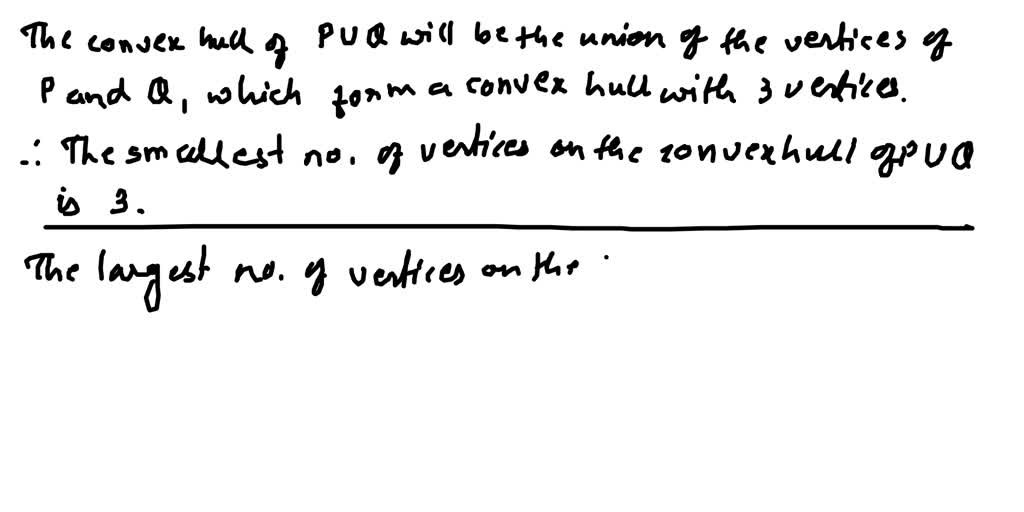 The convex hull of P U Q will be the union of the vertices of
P and Q, which form a convex hull with 3 vertices.
∴ The smallest no. of vertices on the convex hull of P U Q
is 3.
The largest no. of vertices on the